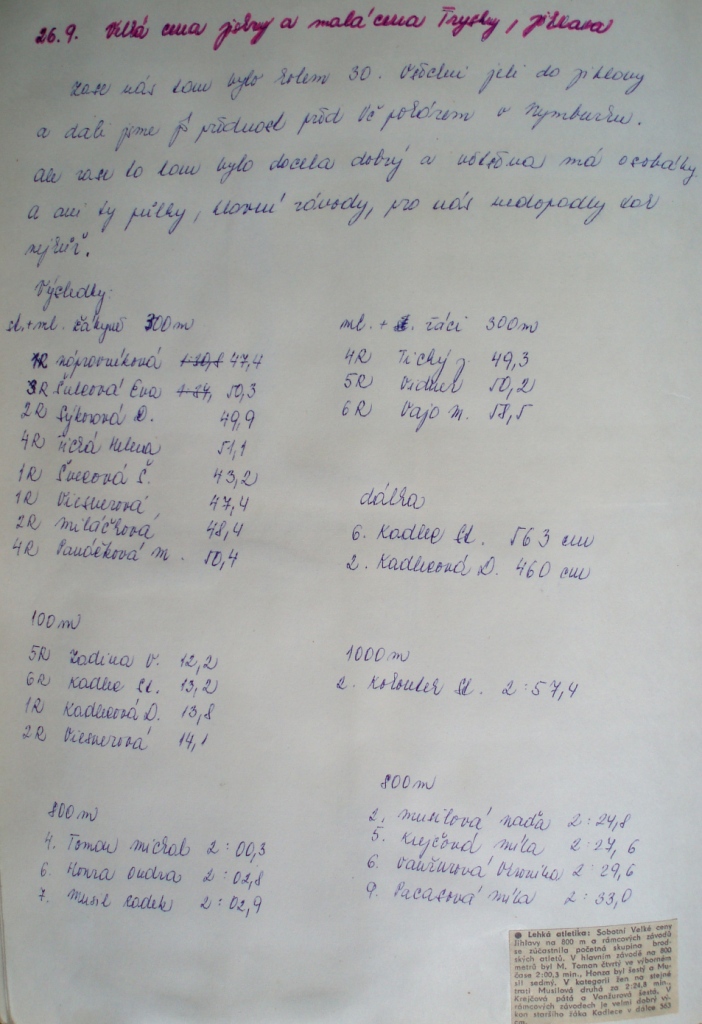 26.9. Velká cena jihry a malá cena Trysky, jihlava
Zase nás tam bylo kolem 30. Všichni jeli do jihlavy
a dali jsme přednost před VČ pohárem v Nymburku.
ale zase to tam bylo docela dobrý a většina má osobáky
a ani ty půlky, hlavní závody, pro nás nedopadly zas
nejhůř.
Výsledky:
st.+ml. žákyně 300m
1R Nápravníková 47,4
3R Šulcová Eva 50,3
2R Sýkorová D. 49,9
4R Tichá Helena 51,1
1R Švecová Š. 43,2
1R Viesnerová 47,4
2R Miláčková 48,4
4R Panáčková M. 50,4
ml. + st. žáci 300m
4R Tichý J. 49,3
5R Vidner 50,2
6R Vajo M. 58,5
dálka
6. Kadlec St. 563 cm
2. Kadlecová D. 460 cm
100m
5R Zadina V. 12,2
6R Kadlec St. 13,2
1R Kadlecová D. 13,8
2R Viesnerová 14,1
1000m
2. Kohoutek St. 2:57,4
800m
4. Toman Michal 2:00,3
6. Honza Ondra 2:02,8
7. Musil Radek 2:02,9
800m
2. Musilová Naďa 2:24,8
5. Krejčová Míla 2:27,6
6. Vanžurová Veronika 2:29,6
9. Pacasová Míla 2:33,0
● Lehká atletika: Sobotní Velké ceny
Jihlavy na 800 m a rámcových závodů
se zúčastnila početná skupina brod-
ských atletů. V hlavním závodě na 800
metrů byl M. Toman čtvrtý ve výborném
čase 2:00,3 min., Honza byl šestý a Mu-
sil sedmý. V kategorii žen na stejné
trati Musilová druhá za 2:24,8 min.,
Krejčová pátá a Vanžurová šestá. V
rámcových závodech je velmi dobrý vý-
kon staršího žáka Kadlece v dálce 563
cm.